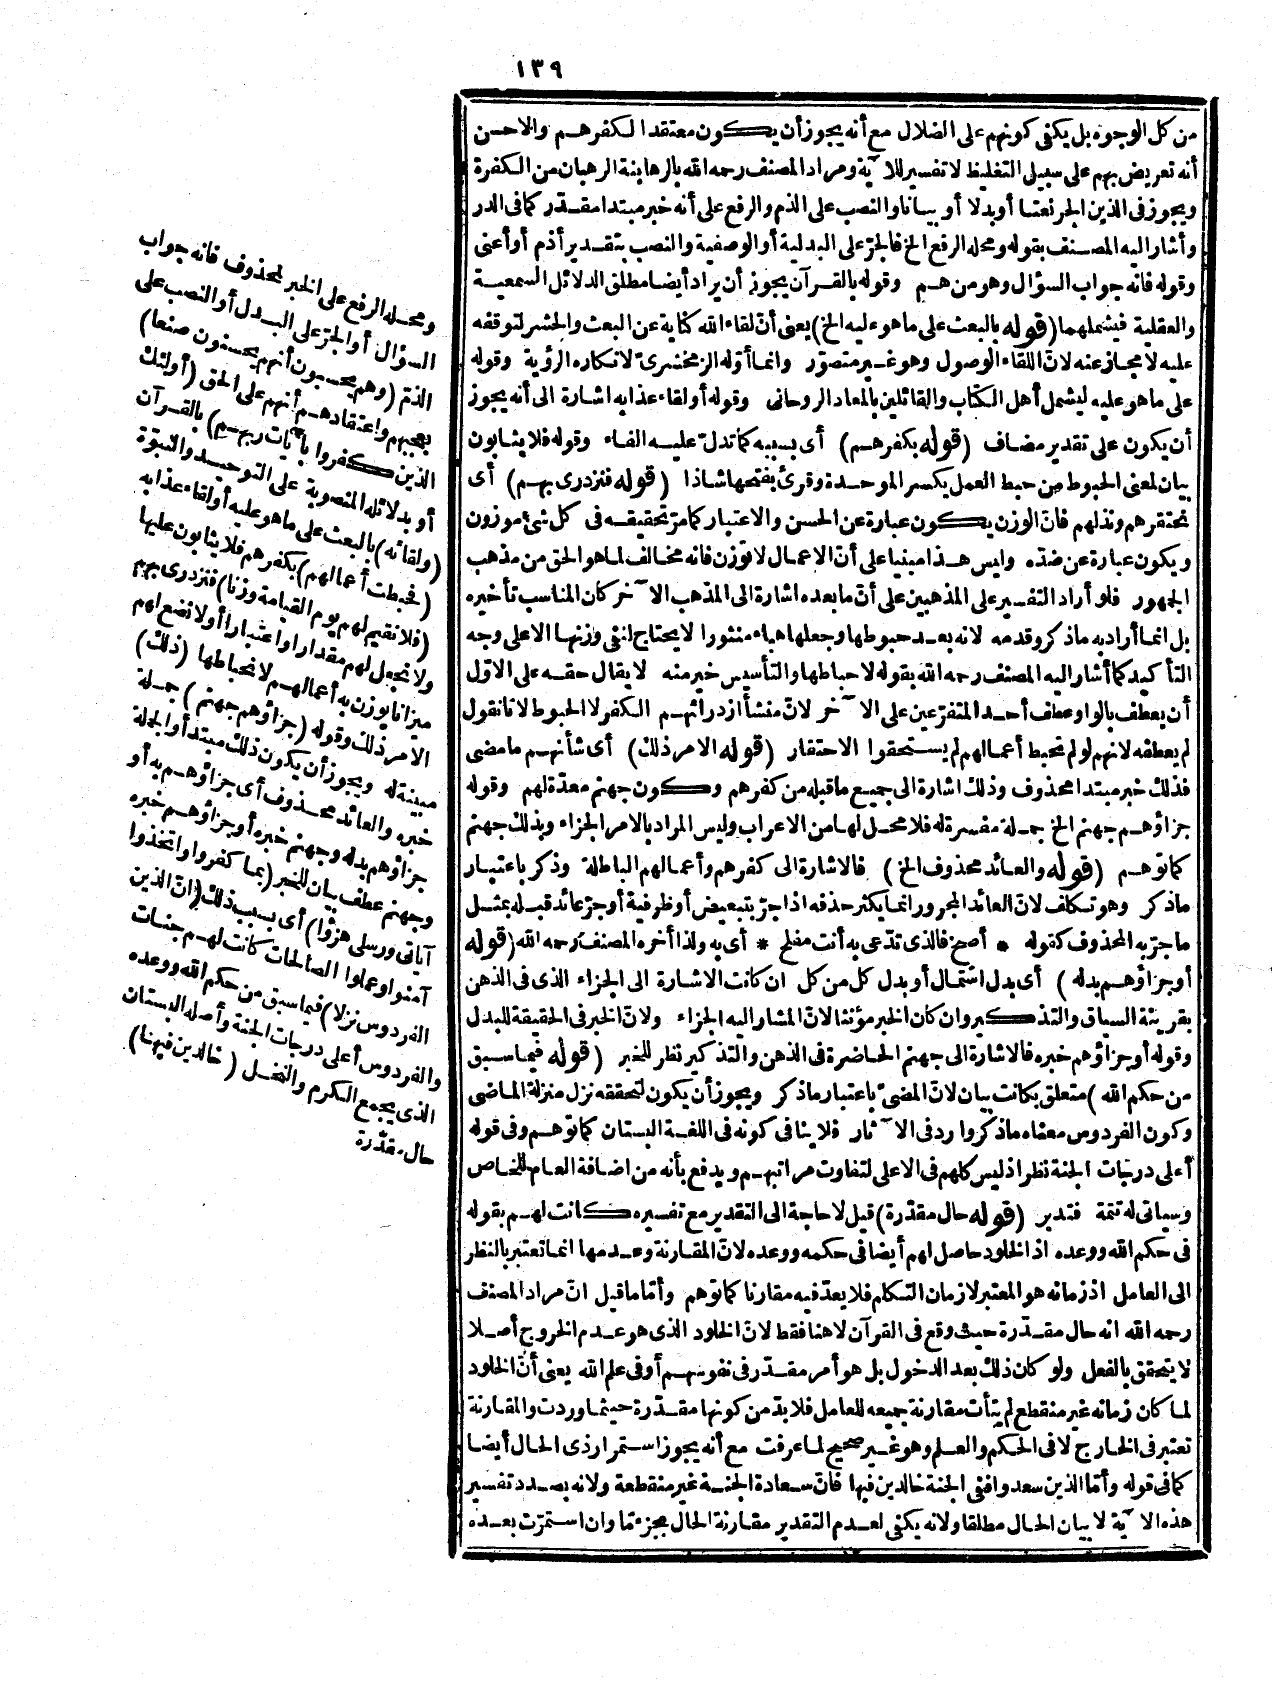 ١٣٩
من كل الوجوه بل يكفي كونهم على الضلال مع أنه يجوز أن يكون معتقد الكفرهم والاحسن
أنه تعريض بهم على سبيل التغليظ لا تفسير للا ية ومراد المصنف رحمه الله بالرهابنة الرهبان من الكفرة
ويجوز في الذين الجر نعتا أو بدلا أو بيانا والنصب على الذم والرفع على أنه خبر مبتدا مقدر كما في الدر
وأشار اليه المصنف بقوله ومحله الرفع الخ فالجر على البدلية أو الوصفية والنصب بتقدير أذم أو أعنى
وقوله فانه جواب السؤال وهو من هم وقوله بالقرآن يجوز أن يراد أيضا مطلق الدلائل السمعية
والعقلية فيشملهما (قوله بالبعث على ما هو عليه الخ) يعنى أنّ لقاء الله كناية عن البعث والحشر لتوقفه
عليه لا مجاز عنه لانّ اللقاء الوصول وهو غير متصوّر وانما أوّله الزمخشرىّ لانكاره الرؤية وقوله
على ما هو عليه ليشمل أهل الكتاب والقائلين بالمعاد الروحانى وقوله أو لقاء عذابه اشارة الى أنه يجوز
أن يكون على تقدير مضاف (قوله بكفرهم) أى بسببه كما تدلّ عليه الفاء وقوله فلا يثابون
بيان لمعنى الحبوط من حبط العمل بكسر الموحدة وقرئ بفتحها شاذا (قوله فنزدرى بهم) أى
نحتقرهم ونذلهم فانّ الوزن يكون عبارة عن الحسن والاعتبار كما مرّ تحقيقه فى كل شئ موزون
ويكون عبارة عن ضدّه وليس هذا مبنيا على أنّ الاعمال لا توزن فانه مخالف لما هو الحق من مذهب
الجمهور فلو أراد التفسير على المذهبين على أنّ ما بعده اشارة الى المذهب الا خر كان المناسب تأخيره
بل انما أراد به ماذكر وقدمه لانه بعد حبوطها وجعلها هباء منثورا لا يحتاج لنفى وزنها الا على وجه
التأكيد كما أشار اليه المصنف رحمه الله بقوله لا حباطها والتأسيس خير منه لا يقال حقه على الاوّل
أن يعطف بالواو عطف أحد المتفرّعين على الا خر لانّ منشأ ازدرائهم الكفر لا الحبوط لانا نقول
لم يعطفه لانهم لو لم تحبط أعمالهم لم يستحقوا الاحتقار (قوله الامر ذلك) أى شأنهم ما مضى
فذلك خبر مبتدا محذوف وذلك اشارة الى جميع ما قبله من كفرهم وكون جهنم معدّة لهم وقوله
جزاؤهم جهنم الخ جملة مفسرة له فلا محل لها من الاعراب وليس المراد بالامر الجزاء وبذلك جهنم
كما توهم (قوله والعائد محذوف الخ) فالاشارة الى كفرهم وأعمالهم الباطلة وذكر باعتبار
ماذكر وهو تكلف لانّ العائد المجرور انما يكثر حذفه اذا جرّ بتبعيض أو ظرفية أو جرّ عائد قبله بمثل
ما جرّ به المحذوف كقوله * أصخ فالذى تدعى به أنت مفلح * أى به ولذا أخره المصنف رحمه الله (قوله
أو جزاؤهم بدله) أى بدل اشتمال أو بدل كل من كل ان كانت الاشارة الى الجزاء الذى فى الذهن
بقرينة السياق والتذكير وان كان الخبر مؤنثا لانّ المشار اليه الجزاء ولانّ الخبر فى الحقيقة للبدل
وقوله أو جزاؤهم خبره فالاشارة الى جهنم الحاضرة فى الذهن والتذكير نظر للخبر (قوله فيما سبق
من حكم الله) متعلق بكانت بيان لانّ المضىّ باعتبار ماذكر ويجوز أن يكون لتحققه نزل منزلة الماضى
وكون الفردوس معناه ماذكر وارد فى الا ثار فلا ينافى كونه فى اللغة البستان كما توهم وفى قوله
أعلى درجات الجنة نظر اذ ليس كلهم فى الاعلى لتفاوت مراتبهم ويدفع بأنه من اضافة العام للخاص
وسيأتى له تتمة فتدبر (قوله حال مقدّرة) قيل لا حاجة الى التقدير مع تفسيره كانت لهم بقوله
فى حكم الله ووعده اذ الخلود حاصل لهم أيضا فى حكمه ووعده لانّ المقارنة وعدمها انما تعتبر بالنظر
الى العامل اذ زمانه هو المعتبر لازمان التكلم فلا يعدّ فيه مقارنا كما توهم وأمّا ما قيل انّ مراد المصنف
رحمه الله انه حال مقدّرة حيث وقع فى القرآن لا هنا فقط لانّ الخلود الذى هو عدم الخروج أصلا
لا يتحقق بالفعل ولو كان ذلك بعد الدخول بل هو أمر مقدّر فى نفوسهم أو فى علم الله يعنى أنّ الخلود
لما كان زمانه غير منقطع لم يتأت مقارنة جميعه للعامل فلا بدّ من كونها مقدّرة حيثما وردت والمقارنة
تعتبر فى الخارج لا فى الحكم والعلم وهو غير صحيح لما عرفت مع أنه يجوز استمرار ذى الحال أيضا
كما فى قوله وأمّا الذين سعدوا ففى الجنة خالدين فيها فانّ سعادة الجنة غير منقطعة ولانه بصدد تفسير
هذه الا ية لا بيان الحال مطلقا ولانه يكفى لعدم التقدير مقارنة الحال بجزء مّا وان استمرّت بعده
ومحله الرفع على الخبر لمحذوف فانه جواب
السؤال أو الجرّ على البدل أو النصب على
الذمّ (وهم يحسبون أنهم يحسنون صنعا)
بعجبهم واعتقادهم أنهم على الحق (أولئك
الذين كفروا بآيات ربهم) بالقرآن
أو بدلائله المنصوبة على التوحيد والنبوّة
(ولقائه) بالبعث على ما هو عليه أو لقاء عذابه
(فحبطت أعمالهم) بكفرهم فلا يثابون عليها
(فلا نقيم لهم يوم القيامة وزنا) فنزدرى بهم
ولا نجعل لهم مقدارا واعتبارا أو لا نضع لهم
ميزانا يوزن به أعمالهم لانحباطها (ذلك)
الامر ذلك وقوله (جزاؤهم جهنم) جملة
مبينة له ويجوز أن يكون ذلك مبتدأ والجملة
خبره والعائد محذوف أى جزاؤهم به أو
جزاؤهم بدله وجهنم خبره أو جزاؤهم خبره
وجهنم عطف بيان للخبر (بما كفروا واتخذوا
آياتى ورسلى هزؤا) أى بسبب ذلك (انّ الذين
آمنوا وعملوا الصالحات كانت لهم جنات
الفردوس نزلا) فيما سبق من حكم الله ووعده
والفردوس أعلى درجات الجنة وأصله البستان
الذى يجمع الكرم والنخل (خالدين فيها)
حال مقدّرة